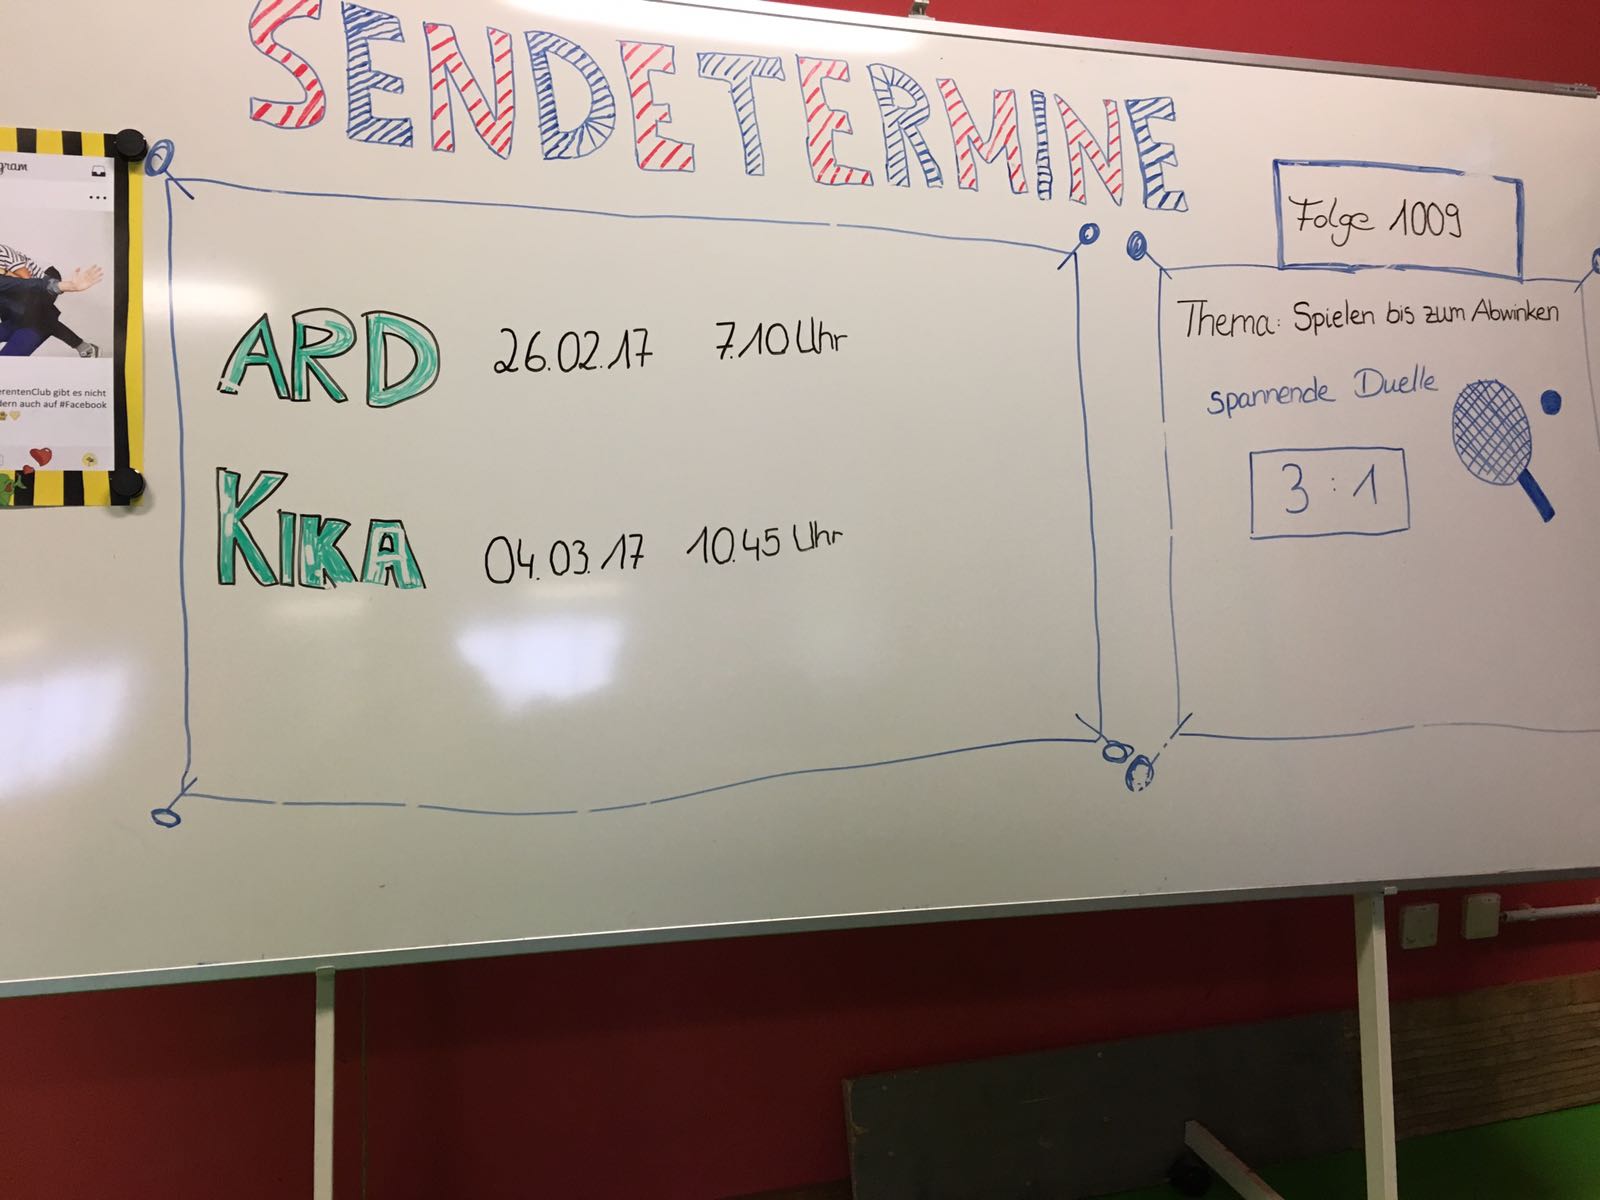 SENDETERMINE
gram
erentenClub gibt es nicht
dern auch auf #Facebook
ARD 26.02.17 7.10 Uhr
KIKA 04.03.17 10.45 Uhr
Folge 1009
Thema: Spielen bis zum Abwinken
spannende Duelle
3 : 1